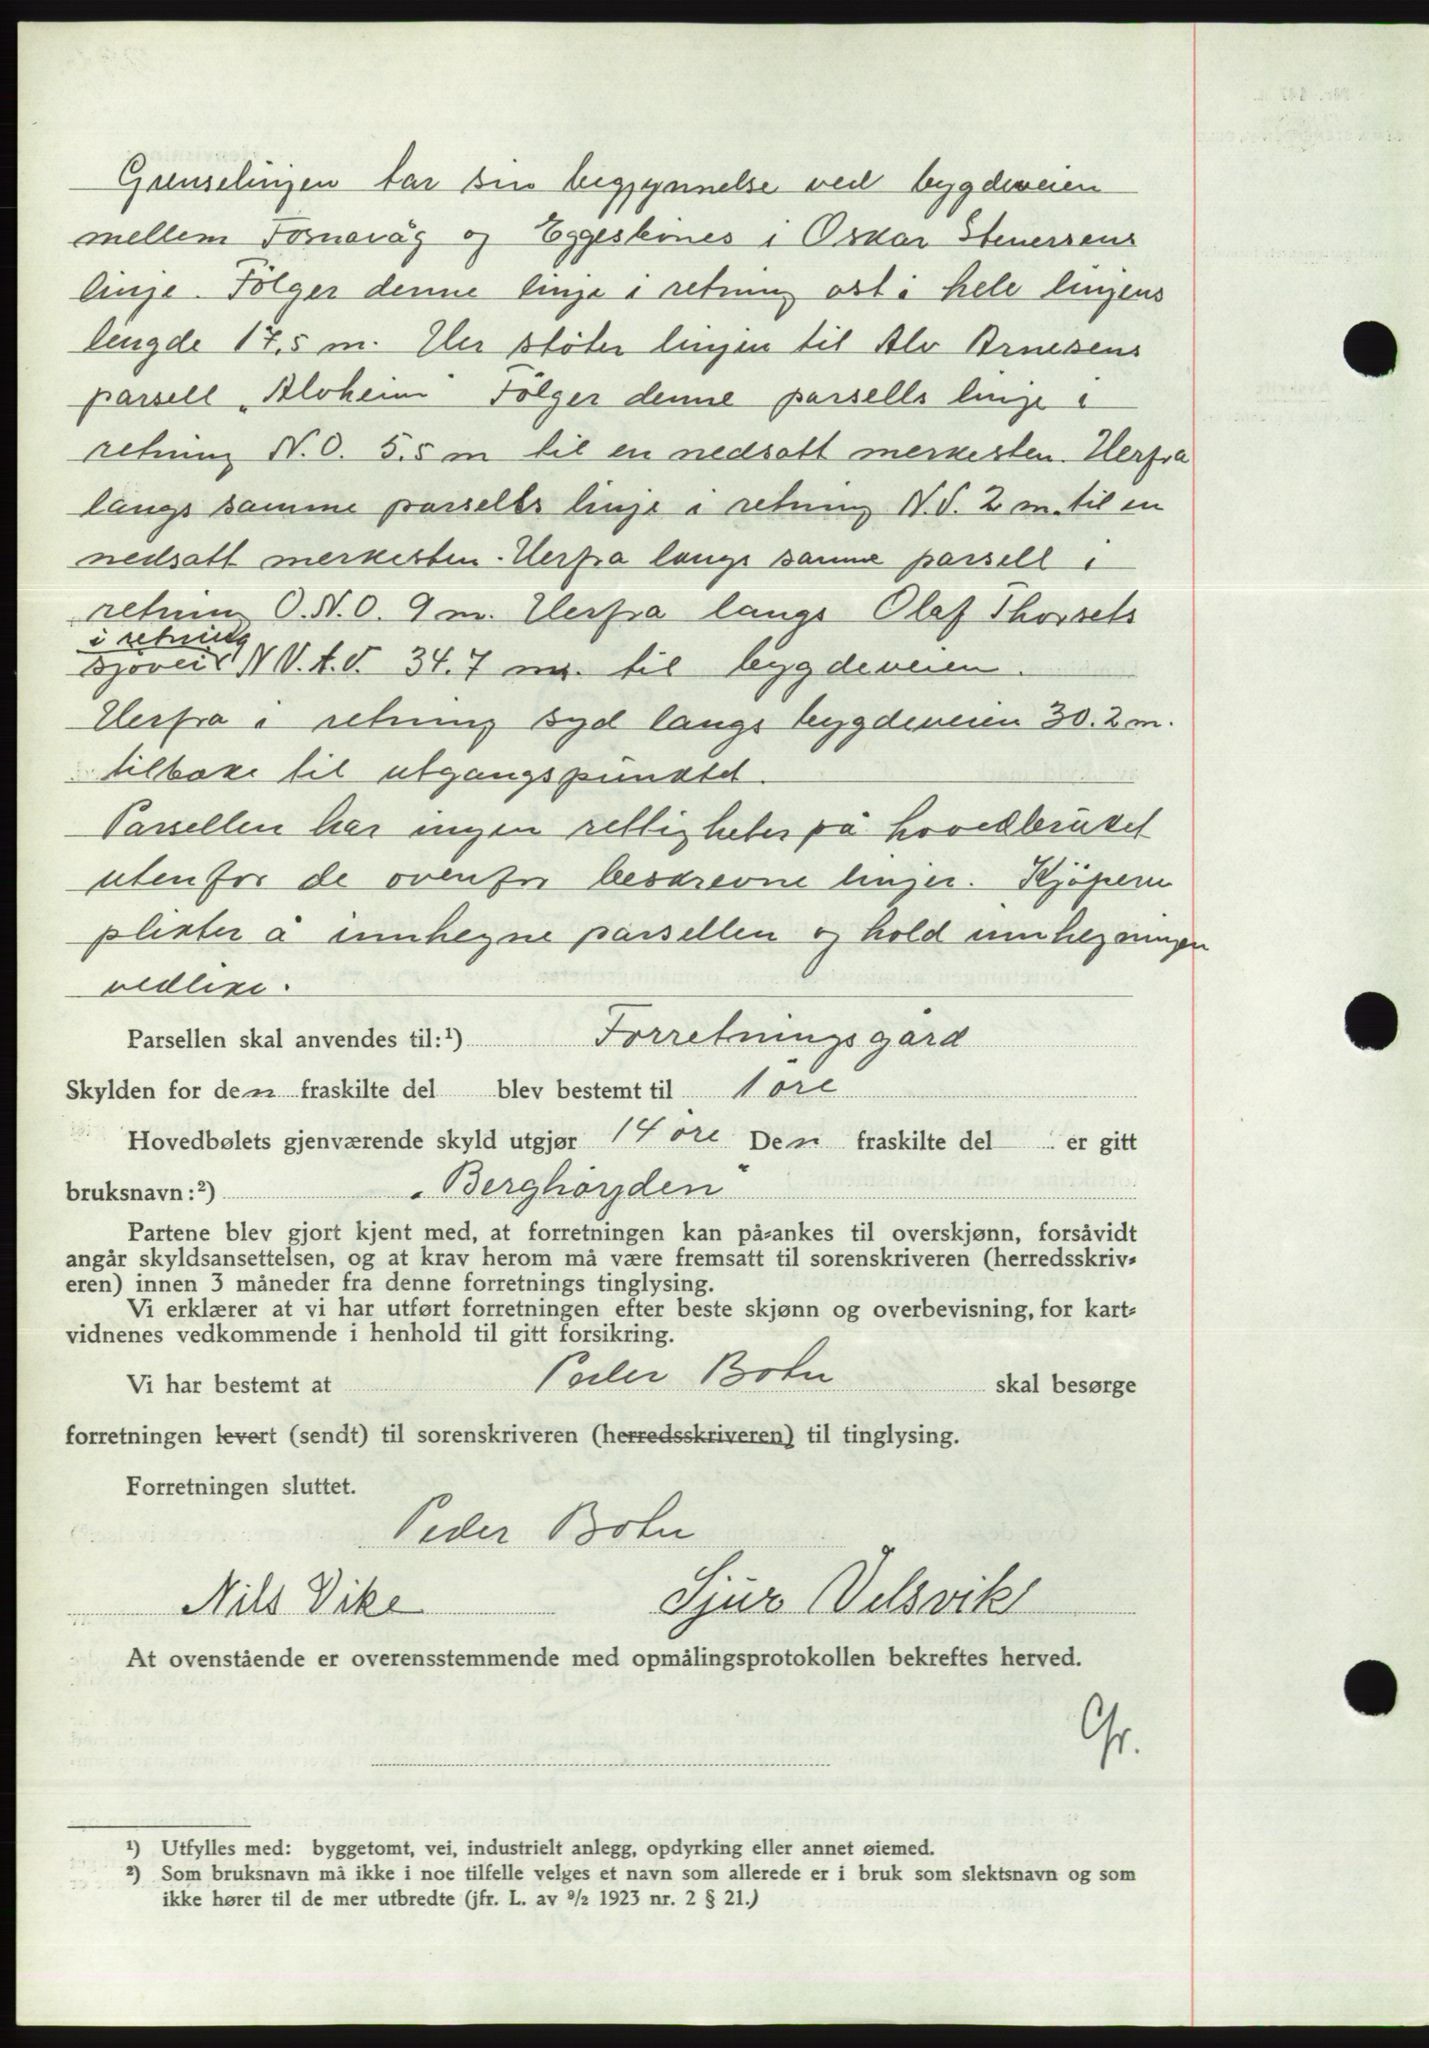 Grenselinjen tar sin begjynnelse ved bygdeveien
mellem Fosnavåg og Eggesbönes i Oskar Stenersens
linje. Fölger denne linje i retning ost i hele linjens
lengde 17,5 m. Her stöter linjen til Alv Arnesens
parsell "Alvheim" Fölger denne parsells linje i
retning N.O. 5.5 m til en nedsatt merkesten. Herfra
langs samme parsells linje i retning N.V. 2 m. til en
nedsatt merkesten. Herfra langs samme parsell i
retning O.N.O. 9 m. Herfra langs Olaf Thorsets
i retning
sjövei N.V.t.V. 34.7 m. til bygdeveien.
Herfra i retning syd langs bygdeveien 30.2 m.
tilbake til utgangspunktet.
Parsellen har ingen rettigheter på hovedbruket
utenfor de ovenfor beskrevne linjer. Kjöperen
plikter å innhegne parsellen og hold innhegningen
vedlike.
Parsellen skal anvendes til:¹) Forretningsgård
Skylden for den fraskilte del blev bestemt til 1 öre
Hovedbølets gjenværende skyld utgjør 14 öre Den fraskilte del er gitt
bruksnavn:²) "Berghöyden"
Partene blev gjort kjent med, at forretningen kan på-ankes til overskjønn, forsåvidt
angår skyldsansettelsen, og at krav herom må være fremsatt til sorenskriveren (herredsskriv-
eren) innen 3 måneder fra denne forretnings tinglysing.
Vi erklærer at vi har utført forretningen efter beste skjønn og overbevisning, for kart-
vidnenes vedkommende i henhold til gitt forsikring.
Vi har bestemt at Peder Bohn skal besørge
forretningen levert (sendt) til sorenskriveren (herredsskriveren) til tinglysing.
Forretningen sluttet.
Peder Bohn
Nils Vike Sjur Velsvik
At ovenstående er overensstemmende med opmålingsprotokollen bekreftes herved.
Gr.
¹) Utfylles med: byggetomt, vei, industrielt anlegg, opdyrking eller annet øiemed.
²) Som bruksnavn må ikke i noe tilfelle velges et navn som allerede er i bruk som slektsnavn og som
ikke hører til de mer utbredte (jfr. L. av 9/2 1923 nr. 2 § 21.)